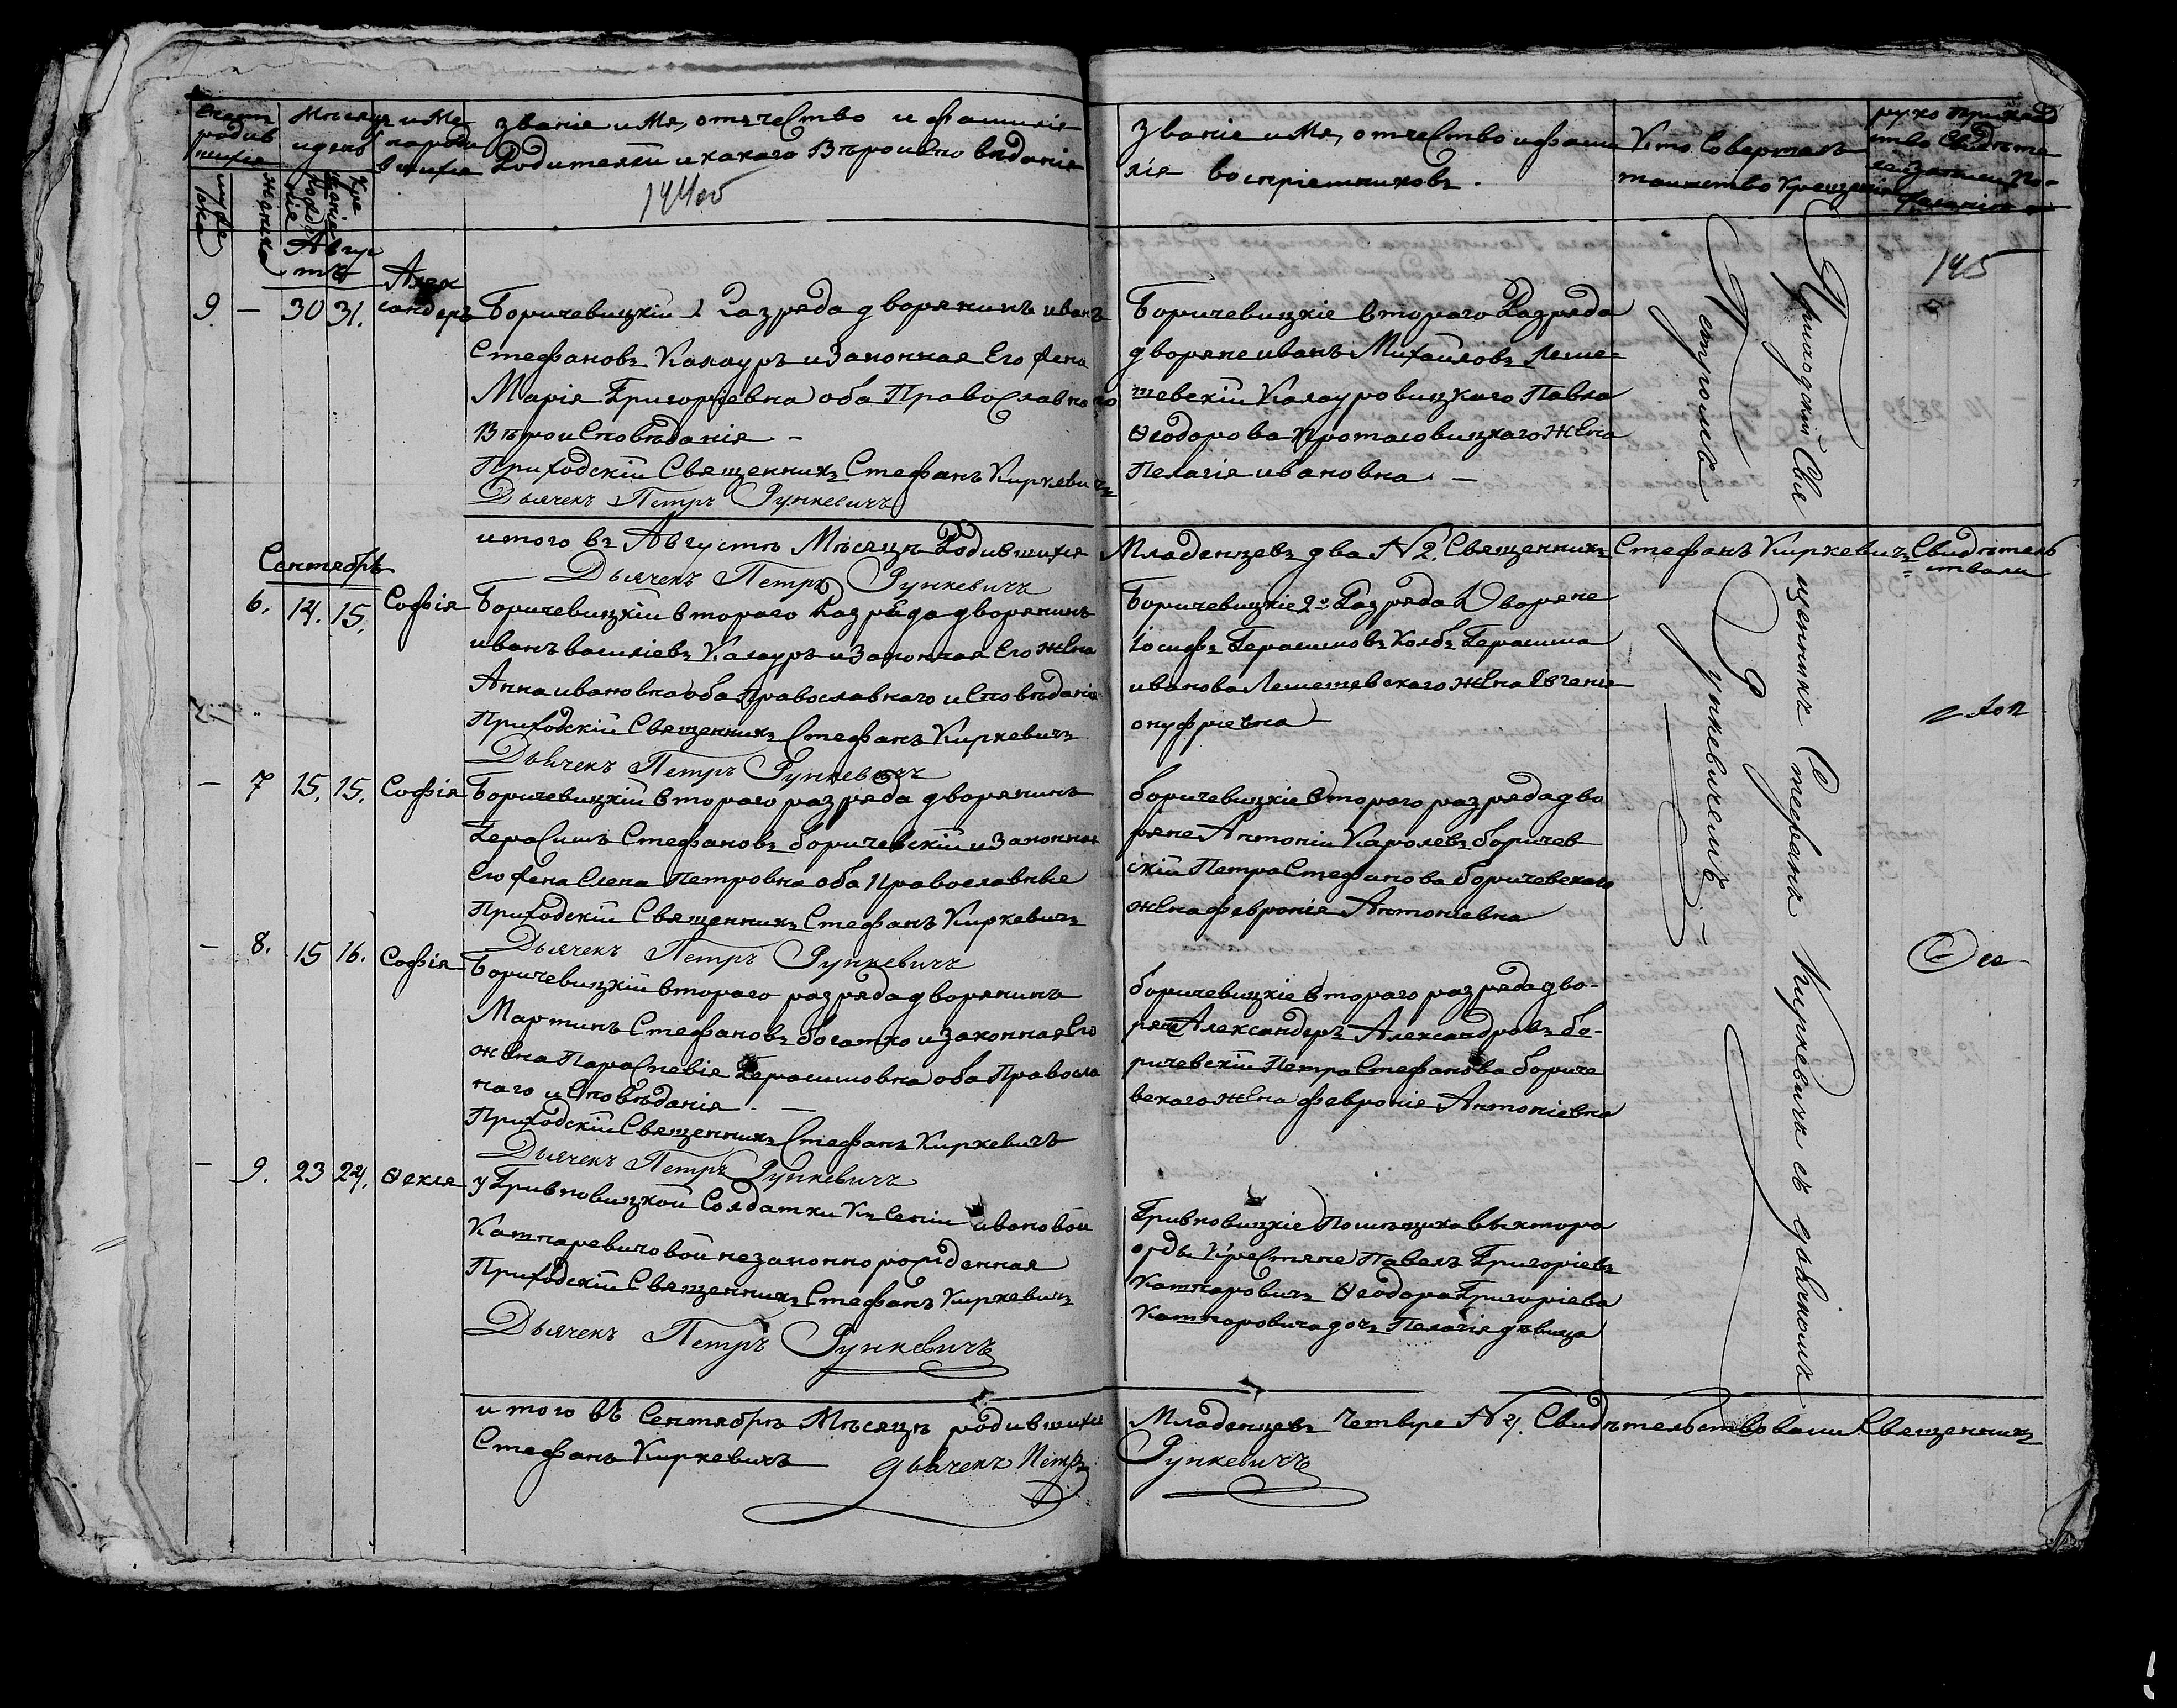 Мѣсяцъ
и день
имена
родив
шихся
званіе имя, отечество и фамилія
Родителей и какаго Вѣроисповѣданія
144об
муже
ска
женска
рожде
ніе
Кре
щеніе
Авгус
тъ
9. — 30 31.
Алек
сандеръ
Боричевицкій 2 Разряда дворянинъ иванъ
Стефановъ Калауръ и Законная Его жена
Марія Григоріевна оба Православнаго
Вѣроисповѣданія —
Приходскій Священникъ Стефанъ Киркевичъ
Дьячекъ Петръ Рункевичъ
итого въ Августѣ Мѣсяцѣ Родившихся
Дьячекъ Петръ Рункевичъ
Сентябрь
6. 14. 15. Софія
Боричевицкій втораго Разряда дворянинъ
иванъ василіевъ Калауръ и Законная Его жена
Анна ивановна оба православнаго исповѣданія
Приходскій Священникъ Стефанъ Киркевичъ
Дьячекъ Петръ Рункевичъ
— 7 15. 15. Софія
Боричевицкій втораго разряда дворянинъ
Герасимъ Стефановъ боричевскій и Законная
Его жена Елена Петровна оба Православные
Приходскій Священникъ Стефанъ Киркевичъ
Дьячекъ Петръ Рункевичъ
— 8. 15 16. Софія
Боричевицкій втораго разряда дворянинъ
Мартинъ Стефановъ богатко и законная Его
жена Параскевія Герасимовна оба Правосла
наго исповѣданія. —
Приходскій Священникъ Стефанъ Киркевичъ
Дьячекъ Петръ Рункевичъ
— 9. 23 24. Ѳекля
у Гривковицкой Солдатки Ксеніи ивановой
незаконнорожденная
Приходскій Священникъ Стефанъ Киркевичъ
Дьячекъ Петръ Рункевичъ
итого въ Сентябрѣ Мѣсяцѣ родившихся
Стефанъ Киркевичъ дьячекъ Петръ
званіе имя, отчество и фами
лія воспріемниковъ.
Кто Совершалъ
таинство Крещенія
145
Боричевицкіе втораго Разряда
дворяне иванъ Михайловъ Леме-
шевскій Калауровицкаго Павла
Ѳеодорова Протасовицкаго жена
Пелагія ивановна —
Младенцевъ два №2. Священникъ Стефанъ Киркевичъ Свидѣтель
ствали
Боричевицкіе 2го Разряда Дворяне
Іосифъ Герасимовъ Колбъ Герасима
иванова Лемешевскаго жена Евгенія
онуфріевна —
боричевицкіе втораго разряда дво
ряне Антоній Каролевъ боричев
скій Петра Стефанова боричевскаго
жена февронія Антоніевна
боричевицкіе втораго разряда дво-
ряне Александеръ Александровъ бо-
ричевскій Петра Стефанова бориче
вскаго жена февронія Антоніевна
Гривковицкіе Помѣщика Виктора
орды Крестяне Павелъ Григоріевъ
Ѳеодора Григоріева
дочь Пелагія дѣвица
Младенцевъ Четыре №4. Свидѣтельствовали Священникъ
Рункевичъ
Приходскій Священникъ Стефанъ Киркевичъ съ дьячкомъ
Петромъ Рункевичемъ —